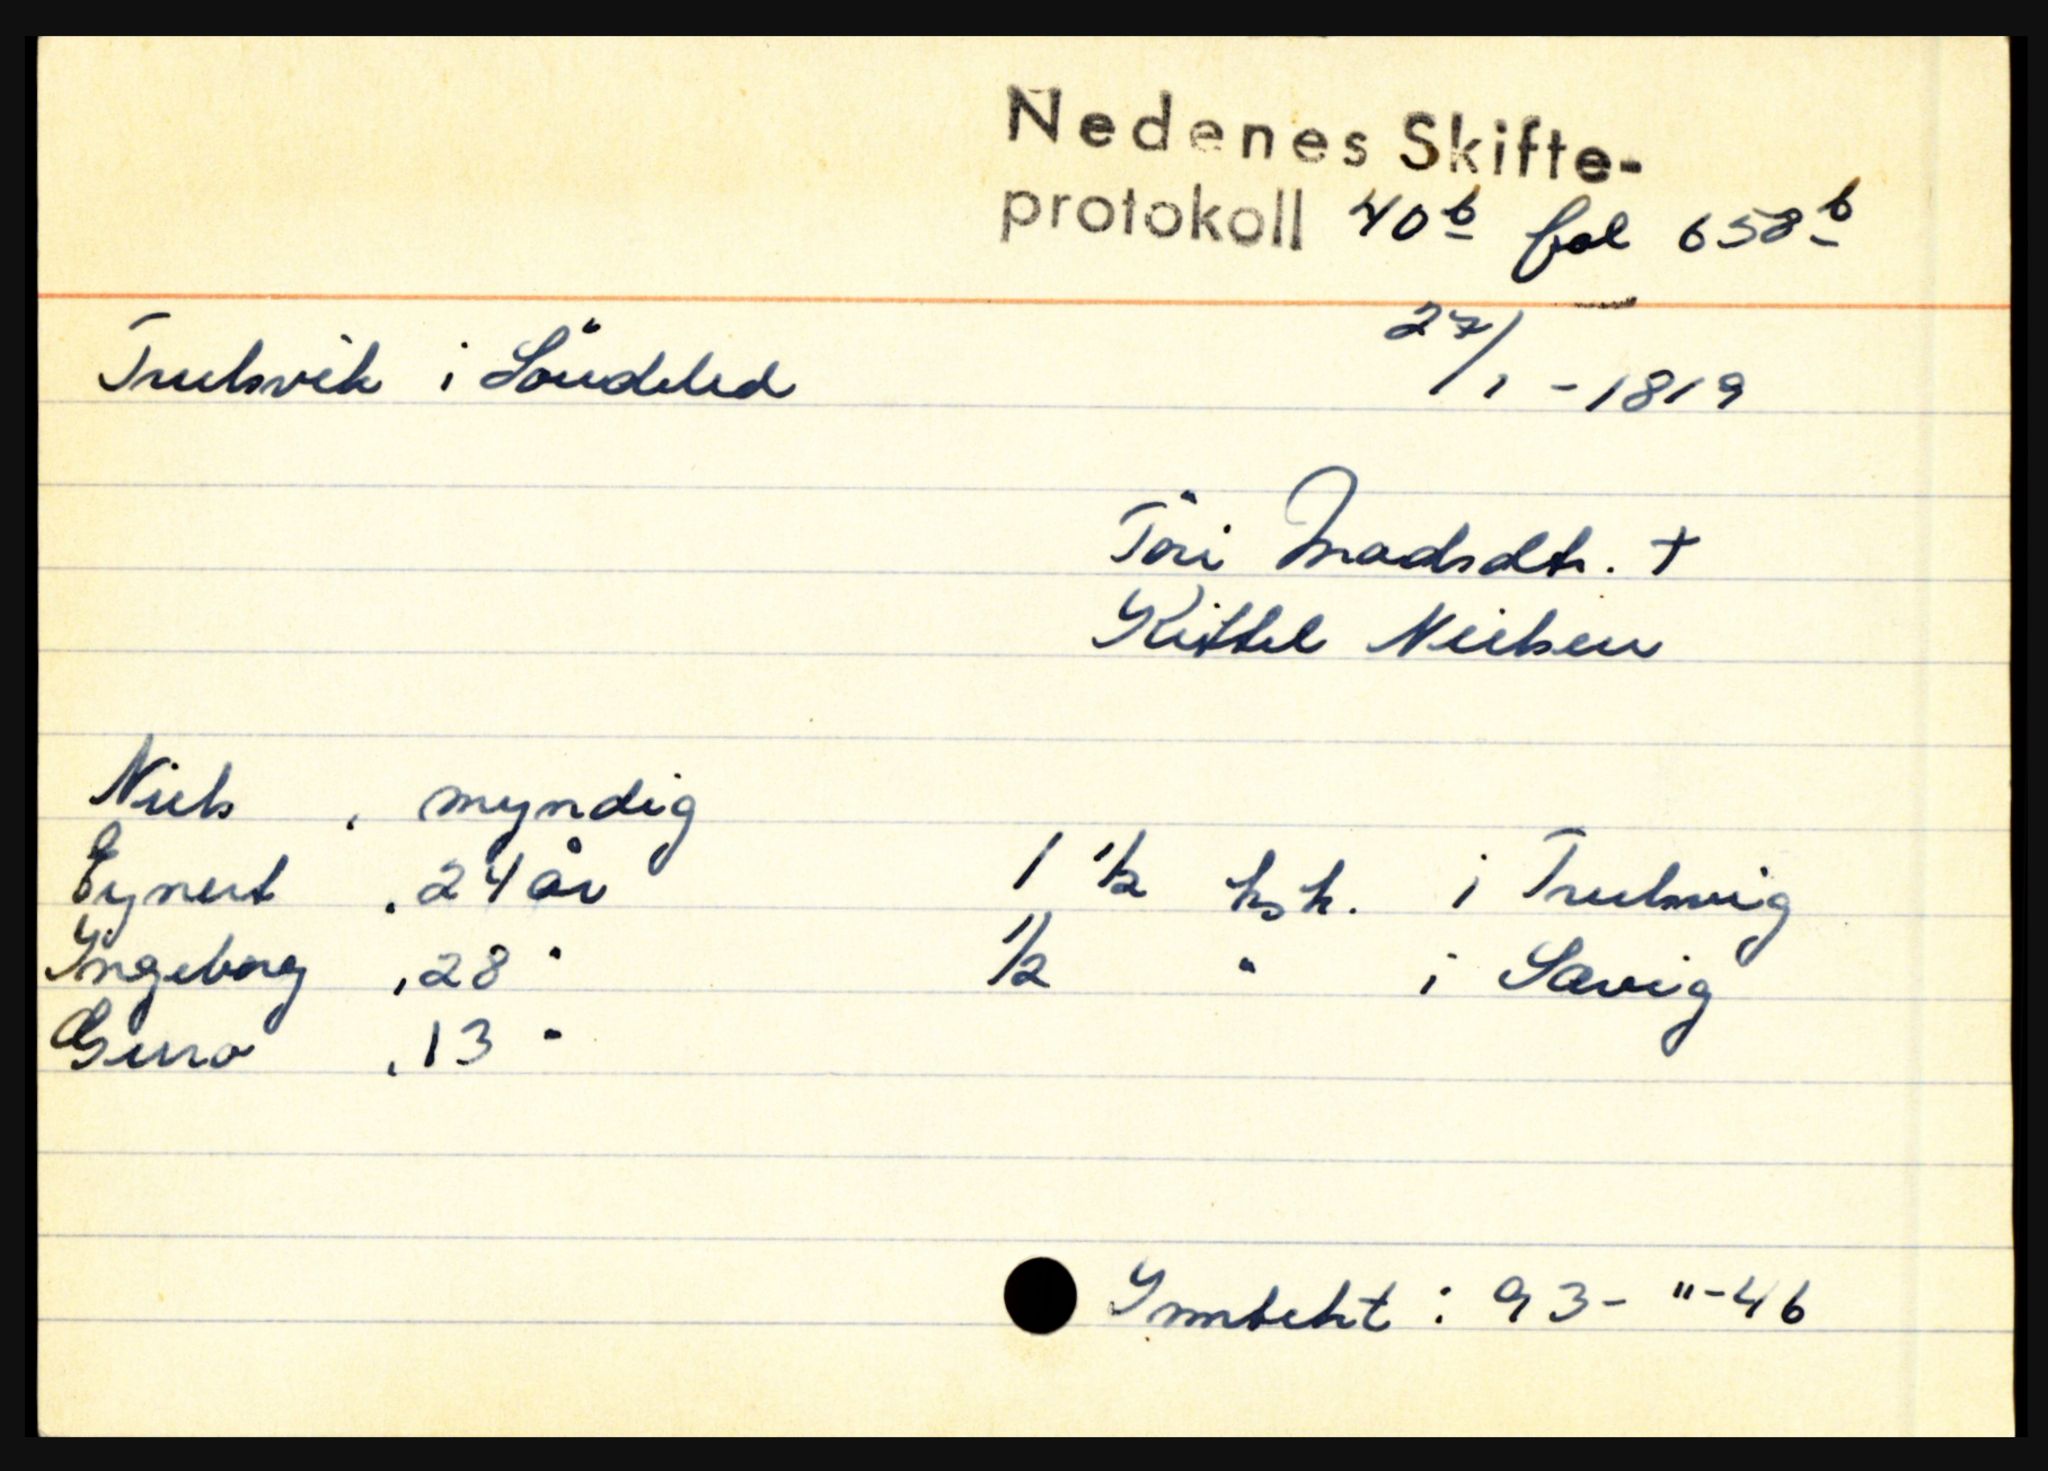 Nedenes Skifte-
protokoll 40b fol 658b
27/1 - 1819
Trulsvik i Söndeled
Töri Madsdtr. +
Kittel Nielsen
Niels , myndig
Eynert , 24 år
Ingeborg , 28 "
Guro , 13 "
1 1/2 hsh. i Trulsvig
1/2 " i Savig
Inntekt : 93- "-46